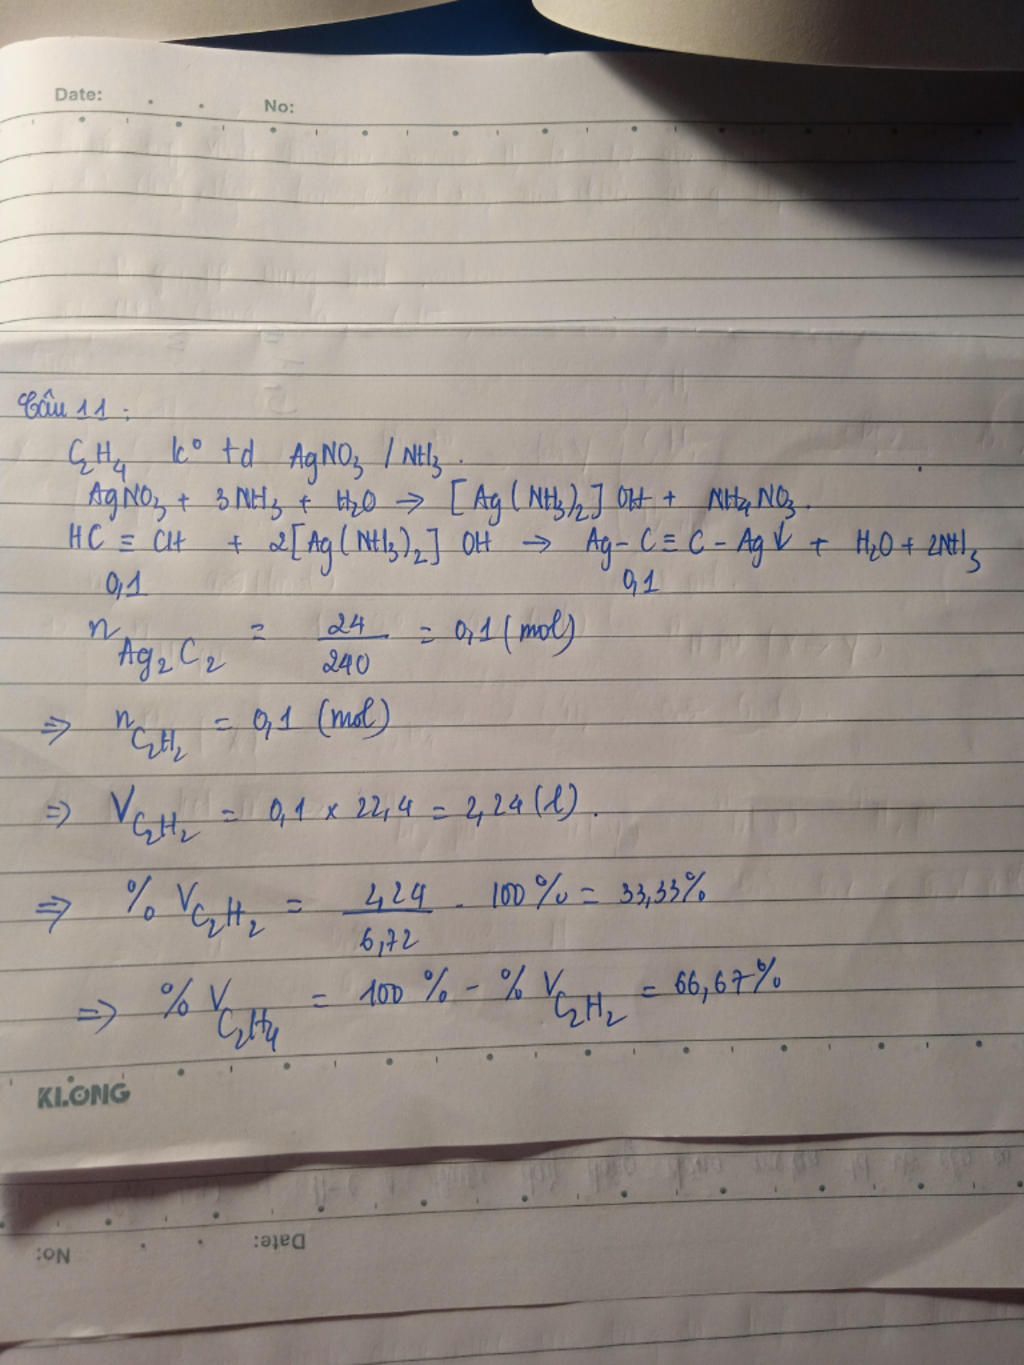 Date: . . No:
Câu 11:
C₂H₄ k° td AgNO₃ / NH₃.
AgNO₃ + 3NH₃ + H₂O → [Ag(NH₃)₂] OH + NH₄NO₃.
HC ≡ CH + 2[Ag(NH₃)₂] OH → Ag – C ≡ C – Ag↓ + H₂O + 2NH₃
0,1 0,1
n Ag₂C₂ = 24/240 = 0,1 (mol)
⇒ n C₂H₂ = 0,1 (mol)
⇒ V C₂H₂ = 0,1 x 22,4 = 2,24 (l).
⇒ % V C₂H₂ = 2,24/6,72 . 100% = 33,33%
⇒ % V C₂H₄ = 100% - % V C₂H₂ = 66,67%
KLONG
Date: . . No: